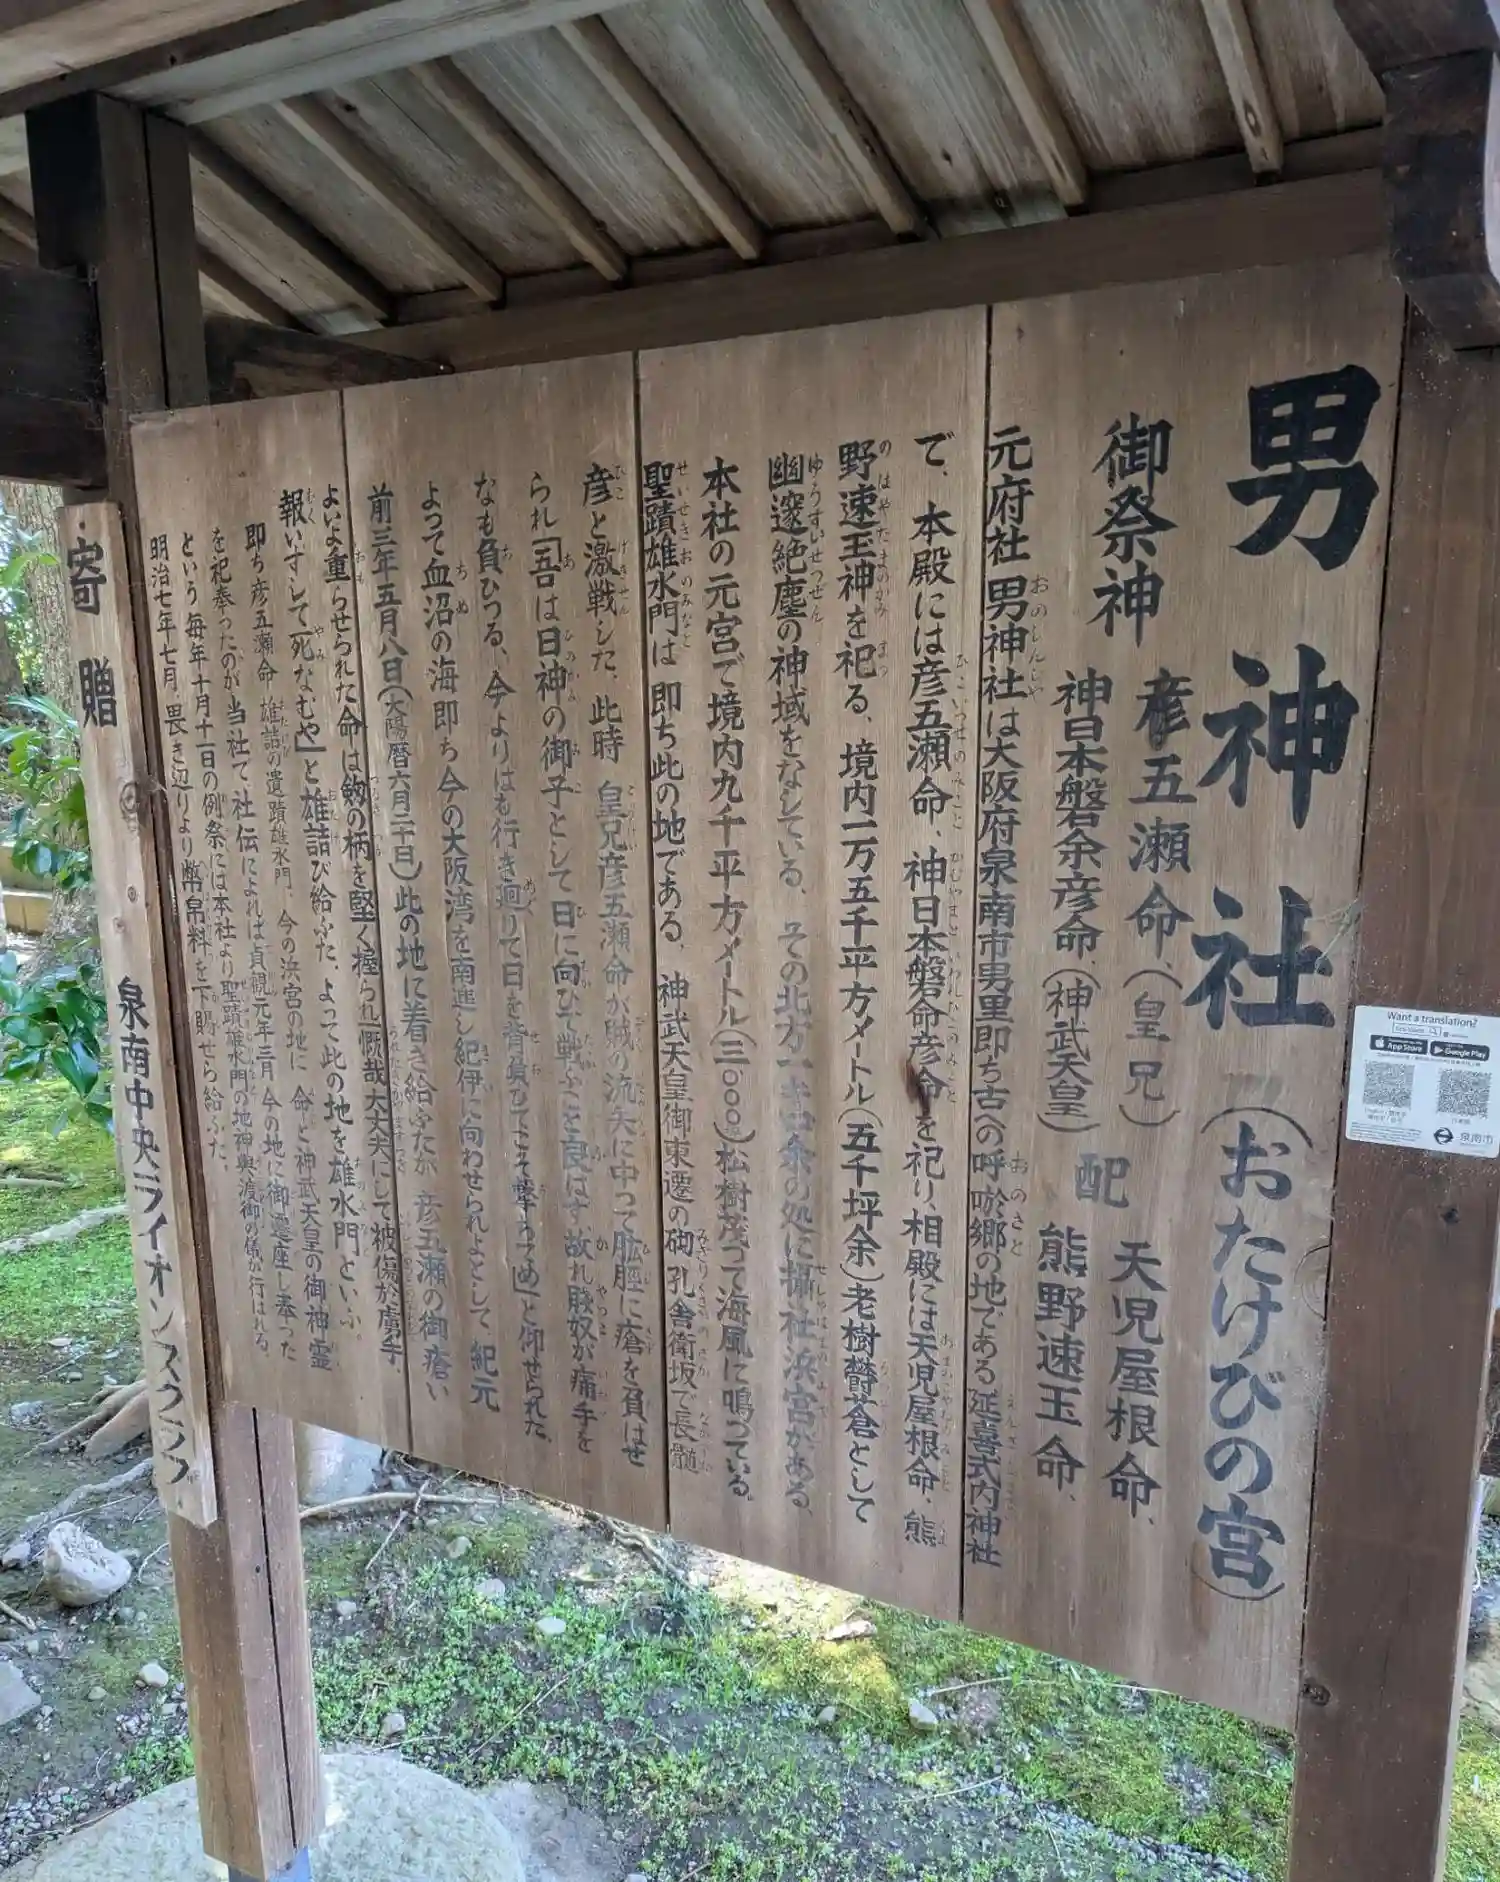 男神社(おたけびの宮)
御祭神
彦五瀬命、(皇兄)
神日本磐余彦命、(神武天皇)
配
天児屋根命、
熊野速玉命、
元府社 男神社は大阪府泉南市男里即ち古(の呼唹郷の地である 延喜式内神社
で、本殿には彦五瀬命、神日本磐命彦命を祀り、相殿には天児屋根命、熊
野速玉神を祀る、境内一万五千平方メートル(五千坪余)老樹欝蒼として
幽邃絶塵の神域をなしている、その北方一キロ余の処に摂社浜宮がある、
本社の元宮で境内九千平方メートル(三〇〇〇)松樹茂って海風に鳴っている。
聖蹟雄水門は 即ち此の地である、神武天皇御東遷の砌 孔舎衛坂で長髄
彦と激戦した、此時 皇兄彦五瀬命が賊の流矢に中って肱脛に瘡を負はせ
られ「吾は日神の御子として日に向ひて戦ふこと良はず、故れ賤奴が痛手を
なも負ひつる、今よりはも行き廻りて日を背負ひてこそ撃ちてめ」と仰せられた、
よって血沼の海即ち今の大阪湾を南進し紀伊に向わせられよとして、紀元
前三年五月八日(太陽暦六月二十日)此の地に着き給ふたが 彦五瀬の御瘡い
よいよ重らせられた命は劔の柄を堅く握られ「慨哉大丈夫にして被傷於虜手、
報いずして死なむや」と雄詰び給ふた、よって此の地を雄水門といふ
即ち彦五瀬命 雄詰の遺蹟雄水門、今の浜宮の地に 命と神武天皇の御神霊
を祀奉ったのが 当社で 社伝によれは貞観元年三月 今の地に御遷座し奉った
という 毎年十月十一日の例祭には本社より聖蹟雄水門の地神輿渡御の儀が行はれる、
明治七年七月 畏き辺りより幣帛料を下賜せら給ふた、
寄贈 泉南中央ライオンズクラブ
Want a translation?
App Store
Google Play
泉南市